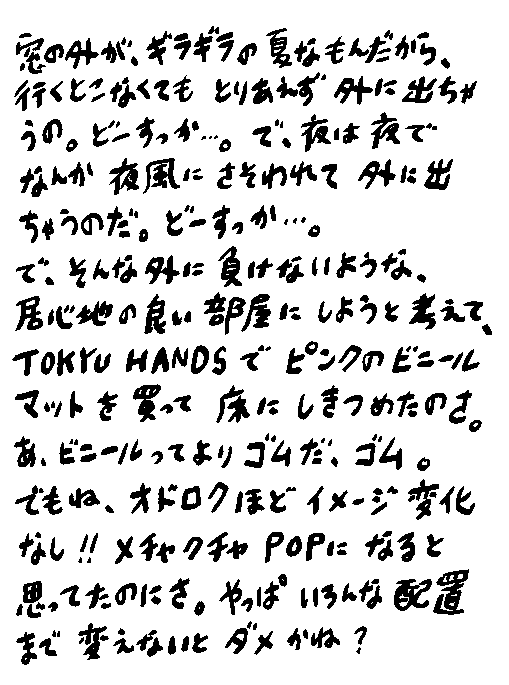 窓の外が、ギラギラの夏なもんだから、
行くとこなくても とりあえず 外に出ちゃ
うの。どーすっか…。で、夜は夜で
なんか 夜風に さそわれて 外に出
ちゃうのだ。どーすっか…。
で、そんな外に 負けないような、
居心地の良い 部屋に しようと考えて、
TOKYU HANDSで ピンクのビニール
マットを買って 床に しきつめたのさ。
あ、ビニールってより ゴムだ、ゴム。
でもね、オドロクほど イメージ変化
なし!! メチャクチャ POPに なると
思ってたのにさ。やっぱ いろんな配置
まで 変えないと ダメかね?